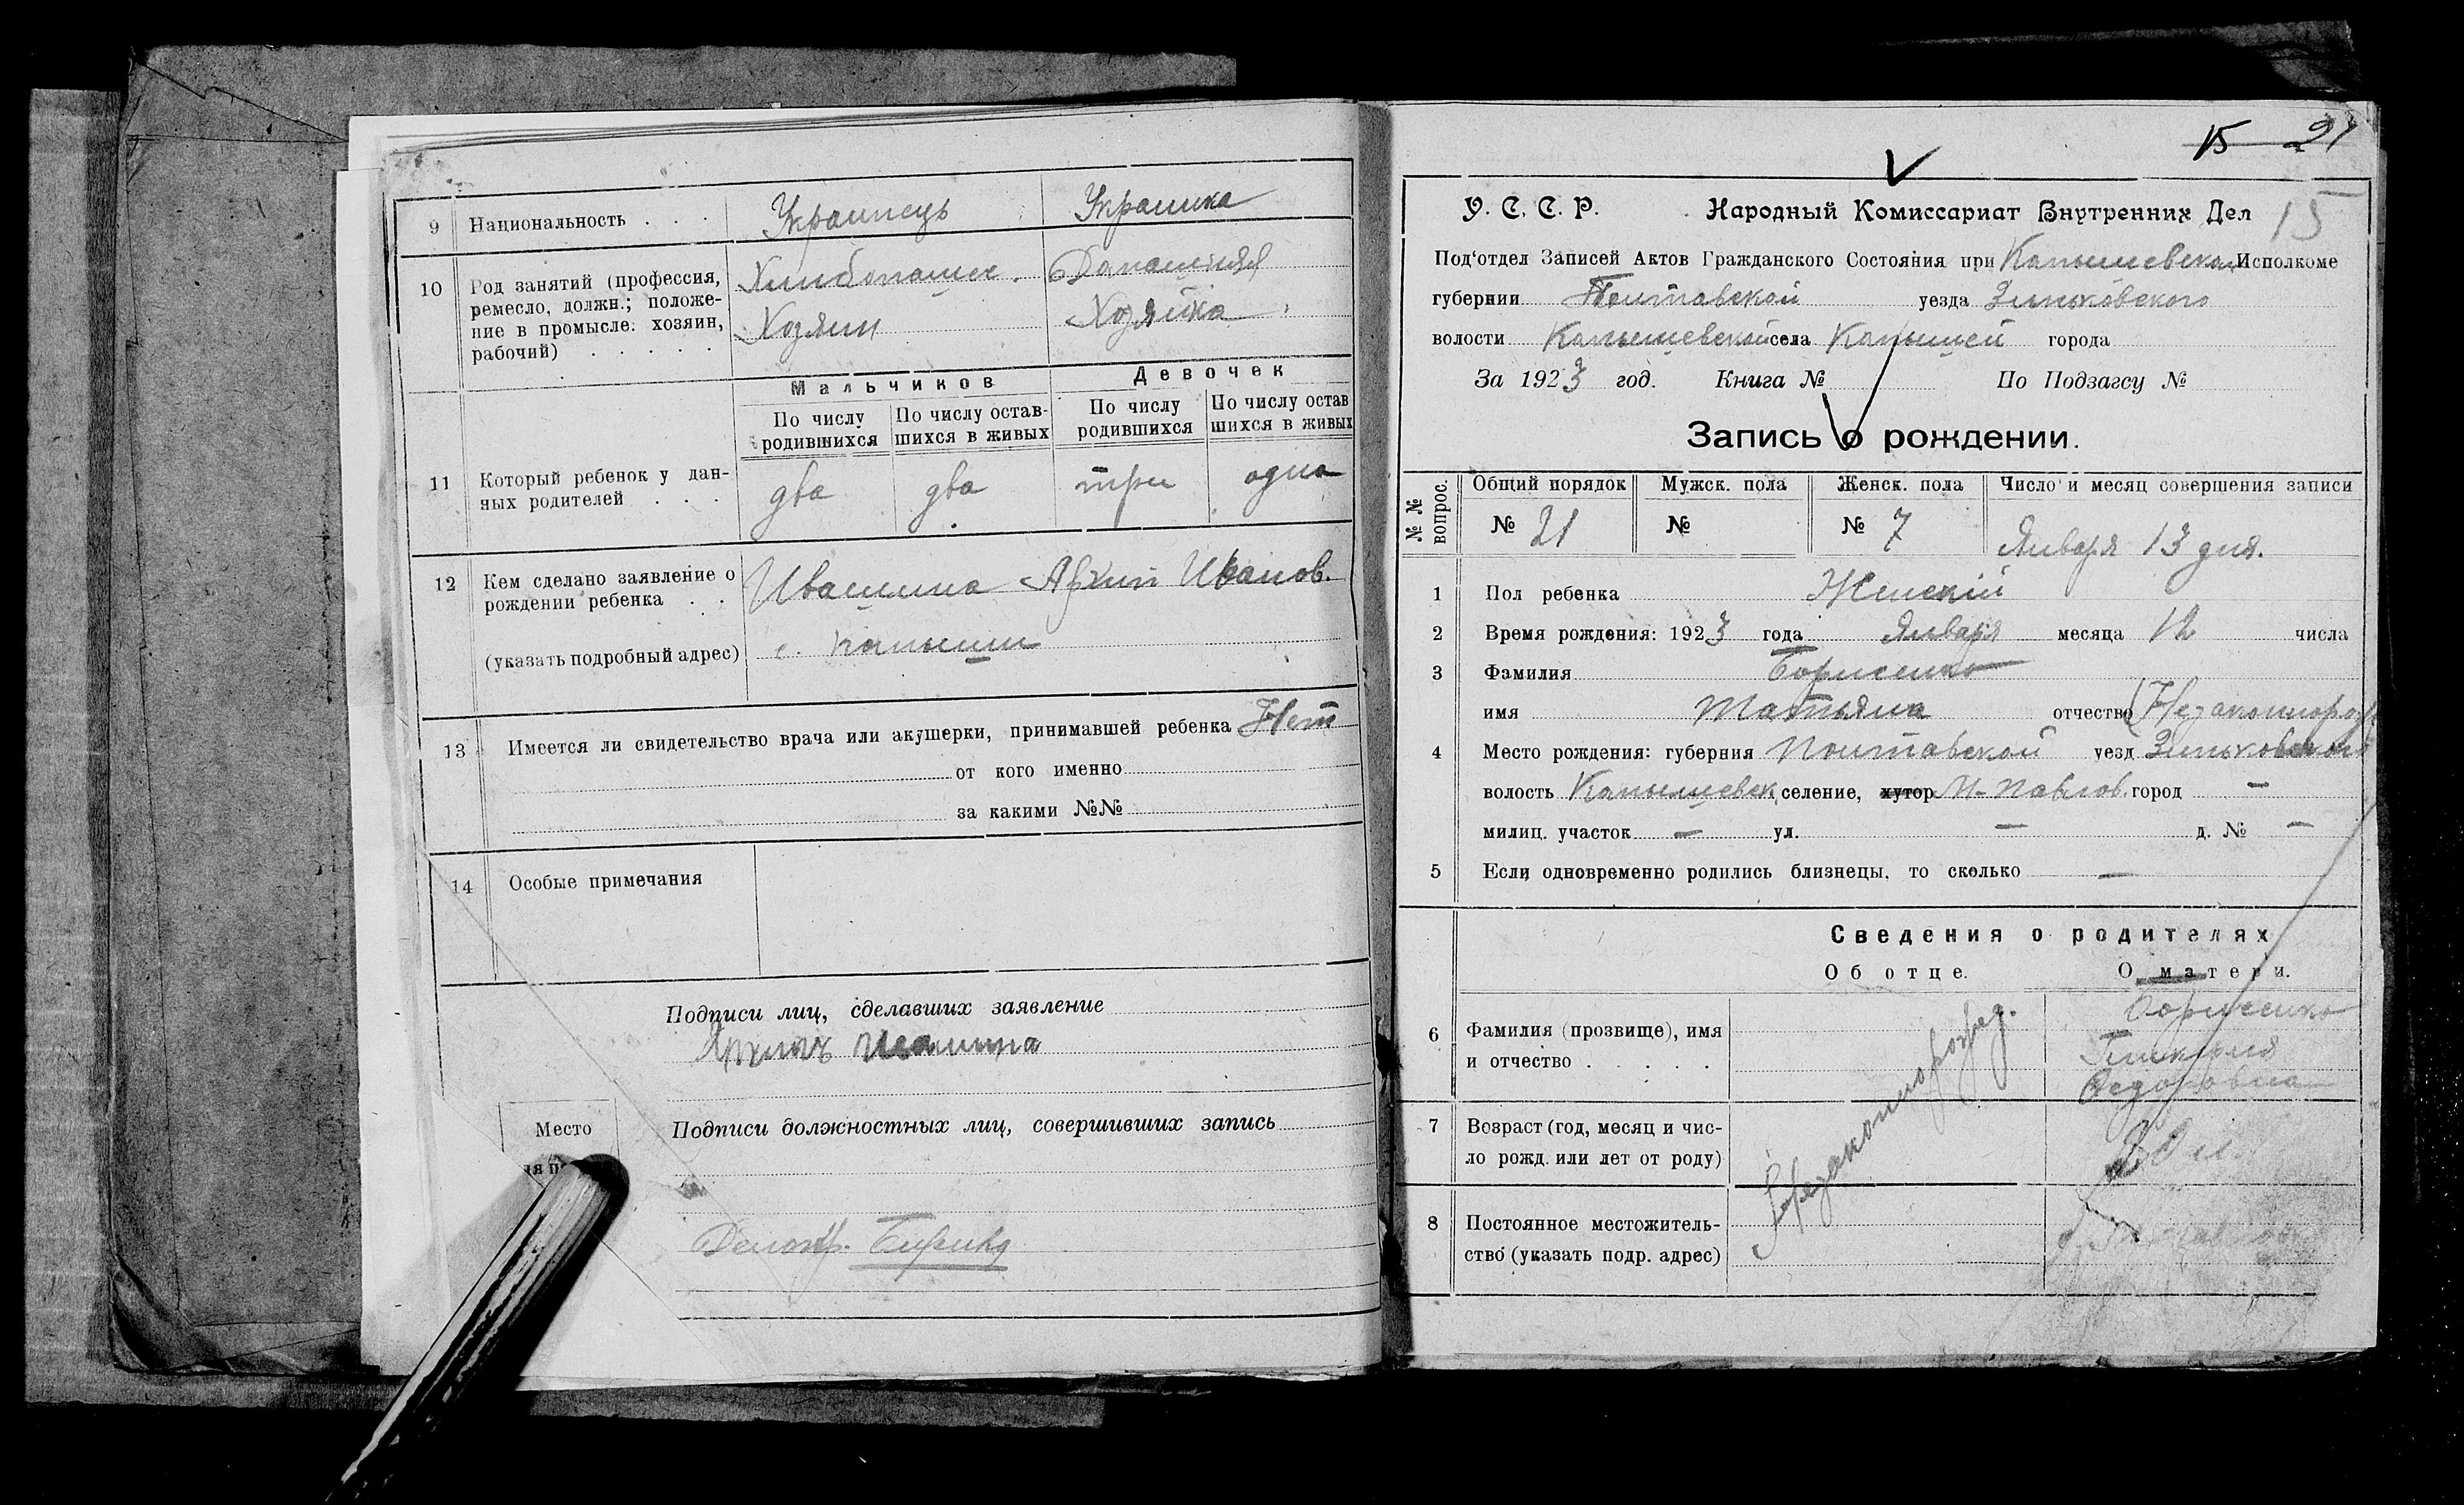 9 Национальность . . . Украинець Украинка
10 Род занятий (профессия, Хлибопашец. Домашняя
ремесло, должн.; положе-
ние в промысле: хозяин, Хозяин Хозяйка
рабочий) . . . . .
Мальчиков Девочек
По числу По числу остав- По числу По числу остав
родившихся шихся в живых родившихся шихся в живых
11 Который ребенок у дан-
ных родителей . . . два два три одна
12 Кем сделано заявление о Ивашина Архип Иванов.
рождении ребенка . .
(указать подробный адрес) с. Капыши
13 Имеется ли свидетельство врача или акушерки, принимавшей ребенка Нет
от кого именно
за какими №№
14 Особые примечания
Подписи лиц, сделавших заявление
Ивашина
Место
Подписи должностных лиц, совершивших запись
Делопр.
15 21
У. С. С. Р. Народный Комиссариат Внутренних Дел 15
Под'отдел Записей Актов Гражданского Состояния при Капышевском Исполкоме
губернии Полтавской уезда Зиньковского
волости Капышевской села Капышей города
За 1923 год. Книга № По Подзагсу №
Запись о рождении.
№№ вопрос. Общий порядок Мужск. пола Женск. пола Число и месяц совершения записи
№ 21 № № 7 Января 13 дня.
1 Пол ребенка Женскій
2 Время рождения: 1923 года Января месяца 12 числа
3 Фамилия Борисенко
имя Татьяна отчество (Незаконнорожд
4 Место рождения: губерния Полтавской уезд Зиньковского
волость Капышевск. селение, хутор Н-Павлов. город —
милиц. участок — ул. — д. № —
5 Если одновременно родились близнецы, то сколько —
Сведения о родителях
Об отце. О матери.
Борисенко
6 Фамилия (прозвище), имя
и отчество . . . . . Незаконнорожд.
7 Возраст (год, месяц и чис-
ло рожд. или лет от роду)
8 Постоянное местожитель-
ство (указать подр. адрес)